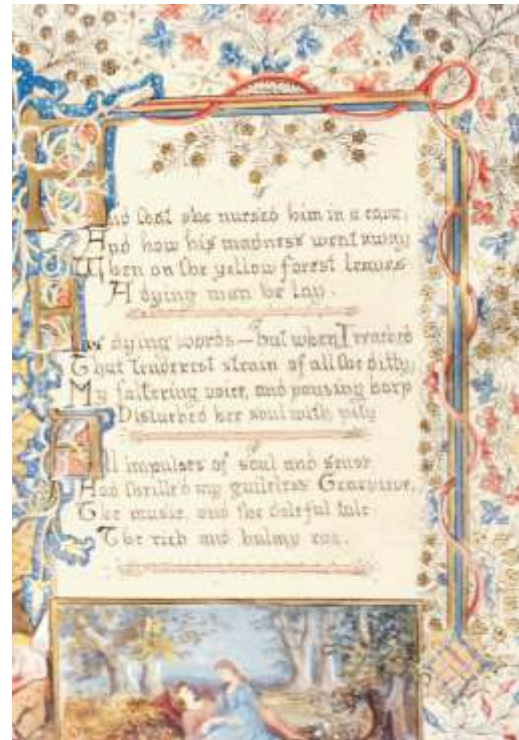 And that she nursed him in a cave;
And how his madness went away
When on the yellow forest leaves
A dying man he lay.
His dying words—but when I reached
That tenderest strain of all the ditty,
My faltering voice, and pausing harp
Disturbed her soul with pity
All impulses of soul and sense
Had thrilled my guileless Genevieve,
The music, and the doleful tale,
The rich and balmy eve.